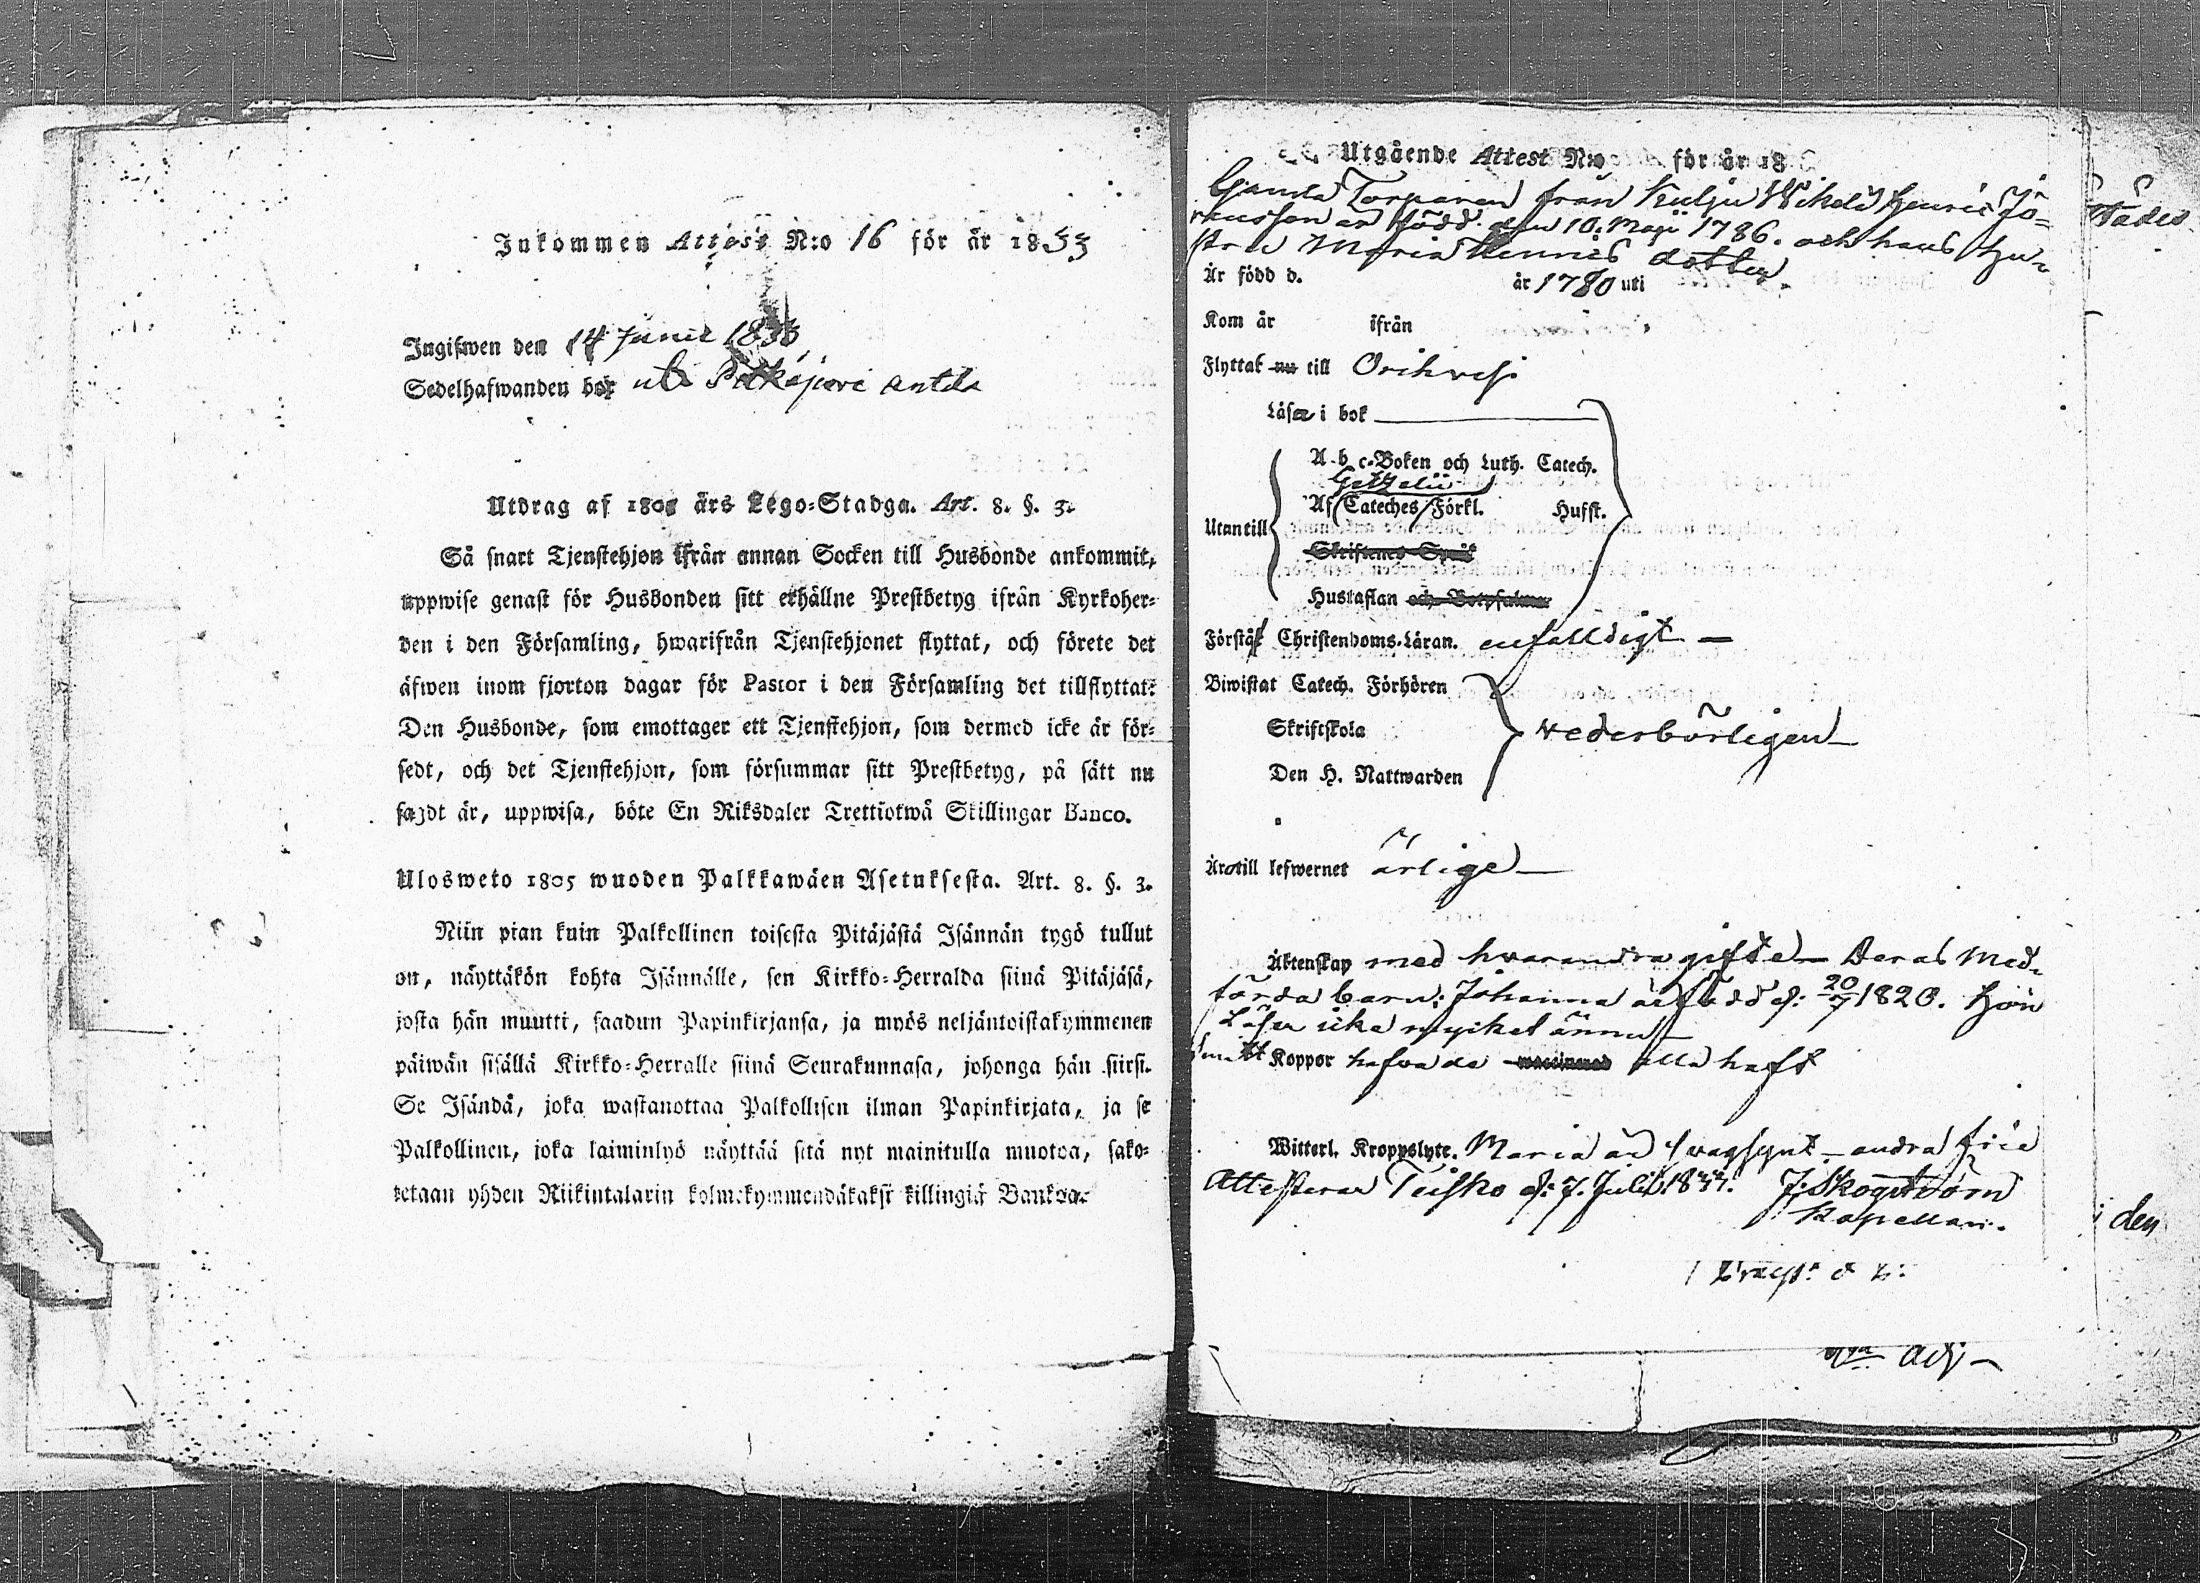 Inkommen Attest N:o 16 för år 1833
Ingifwen den 14 Junii 1833
Sedelhafwanden bor uti Pitkäjärvi
Utdrag af 1805 års Lego-Stadga. Art. 8. §. 3.
Så snart Tjenstehjon ifrån annan Socken till Husbonde ankommit,
uppwise genast för Husbonden sitt erhållne Prestbetyg ifrån Kyrkoher-
den i den Församling, hwarifrån Tjenstehjonet flyttat, och förete det
äfwen inom fjorton dagar för Pastor i den Församling det tillflyttat:
Den Husbonde, som emottager ett Tjenstehjon, som dermed icke är för-
sedt, och det Tjenstehjon, som försummar sitt Prestbetyg, på sätt nu
sagdt är, uppwisa, böte En Riksdaler Trettiotwå Skillingar Banco.
Ulosweto 1805 wuoden Palkkawäen Asetuksesta. Art. 8. §. 3.
Niin pian kuin Palkollinen toisesta Pitäjästä Isännän tygö tullut
on, näyttäkön kohta Isännälle, sen Kirkko-Herralda siinä Pitäjäsä,
josta hän muutti, saadun Papinkirjansa, ja myös neljäntoistakymmenen
päiwän sisällä Kirkko-Herralle siinä Seurakunnasa, johonga hän siirsi.
Se Isändä, joka wastanottaa Palkollisen ilman Papinkirjata, ja se
Palkollinen, joka laiminlyö näyttää sitä nyt mainitulla muotoa, sako-
tetaan yhden Riikintalarin kolmekymmendäkaksi killingiä Bankoa.
Utgående Attest N:o för år 18
Gamla Torparen från Kulju Mikeli Henric Jö-
ransson är född den 10. Maji 1786. och hans hu-
stru Maria Henrics dotter
Är född d. år 1780 uti
Kom år ifrån
Flyttat nu till Orihvesi
Läser i bok
A-b c-Boken och Luth. Catech.
Getzelii
Utantill Af Cateches Förkl. Hufst.
Skriftenes Språk
Hustaflan och Botpsalmer
Förstår Christendoms-Läran. enfalldigt
Biwistat Catech. Förhören
Skriftskola vederbörligen
Den H. Nattwarden
Äro till lefwernet ärlige
Äktenskap med hvarandra gifte Deras Med-
förda barn: Johanna är född d: 20/7 1820. Hon
Läser icke mycket ännu
Koppor hafva de waccinerad alla haft
Witterl. Kroppslyte. Maria är svagsynt – andra frie
Attesterar Teisko d: 7. Julii 1833. J: Skogström
Kapellan.
den